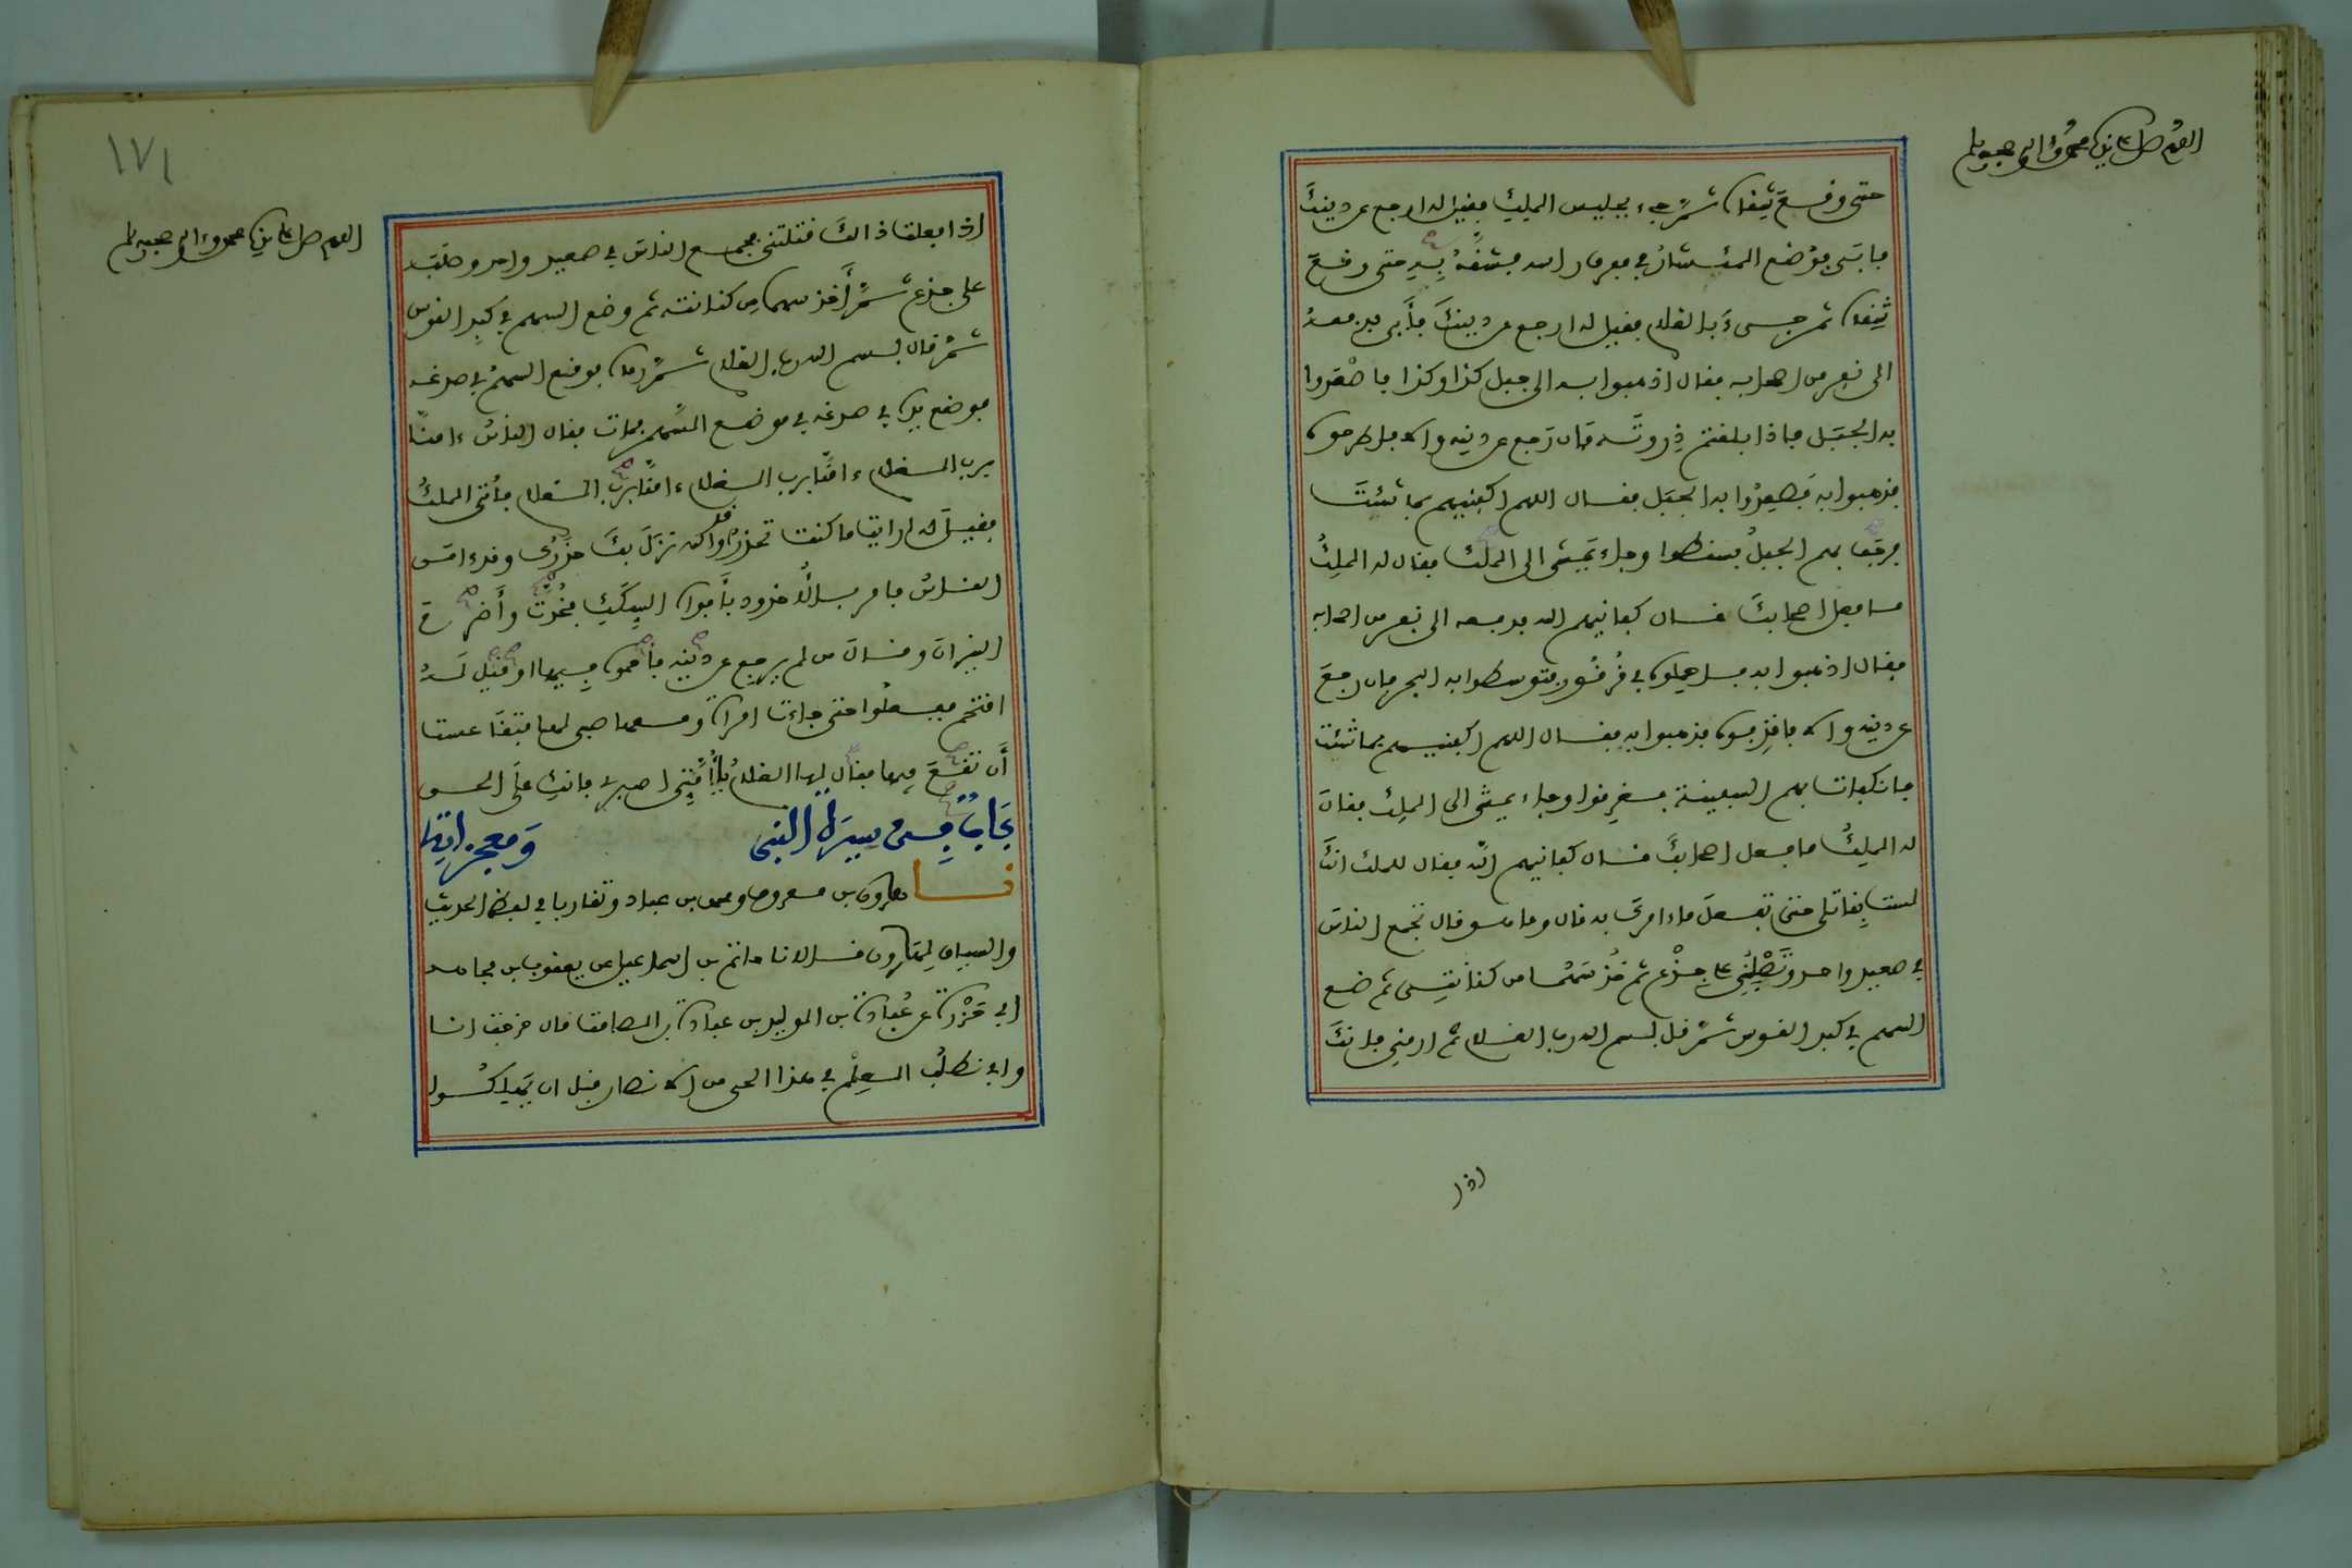 اللهم صل على سيدنا محمد وءاله وصحبه وسلم
حتى وقع شقاه ثم جيء بجليس الملك فقيل له ارجع عن دينك
فابى فوضع المنشار في مفرق راسه فشقه به حتى وقع
شقاه ثم جيء بالغلام فقيل له ارجع عن دينك فأبى فدفعه
الى نفر من اصحابه فقال اذهبوا به الى جبل كذا وكذا فاصعدوا
به الجبل فاذا بلغتم ذروته فان رجع عن دينه والا فاطرحوه
فذهبوا به فصعدوا به الجبل فقال اللهم اكفنيهم بما شئت
فرجف بهم الجبل فسقطوا وجاء يمشى الى الملك فقال له الملك
ما فعل اصحابك قال كفانيهم الله فدفعه الى نفر من اصحابه
فقال اذهبوا به فاحملوه في قرقور فتوسطوا به البحر فان رجع
عن دينه والا فاقذفوه فذهبوا به فقال اللهم اكفنيهم بما شئت
فانكفات بهم السفينة فغرقوا وجاء يمشى الى الملك فقال
له الملك ما فعل اصحابك قال كفانيهم الله فقال للملك انك
لست بقاتلى حتى تفعل ماءامرك به قال وما هو قال تجمع الناس
في صعيد واحد وتصلبني على جذع ثم خذ سهما من كنانتى ثم ضع
السهم في كبد القوس ثم قل بسم الله رب الغلام ثم ارمنى فانك
اذا
١٧١
اللهم صل على سيدنا محمد وءاله وصحبه وسلم
اذا فعلت ذالك قتلتنى فجمع الناس في صعيد واحد وصلبه
على جذع ثم أخذ سهما من كنانته ثم وضع السهم في كبد القوس
ثم قال بسم الله رب الغلام ثم رماه فوقع السهم في صدغه
فوضع يده في صدغه في موضع السهم فمات فقال الناس ءامنا
برب الغلام ءامنا برب الغلام ءامنا برب الغلام فأتى الملك
فقيل له ارايت ما كنت تحذر قد والله نزل بك حذرك قد ءامن
الناس فامر بالأخدود بأفواه السكك فخدت وأضرم
النيران وقال من لم يرجع عن دينه فأحموه فيها او قيل له
اقتحم ففعلوا حتى جاءت امراة ومعها صبى لها فتقاعست
أن تقع فيها فقال لها الغلام يا أمتى اصبرى فانك على الحق
باب في سيرة النبى ومعجزاته
نا هارون بن معروف ومحمد بن عباد وتقاربا في لفظ الحديث
والسياق لهارون قالا نا حاتم بن اسماعيل عن يعقوب بن مجاهد
ابى حزرة عن عبادة بن الوليد بن عبادة بن الصامت قال خرجت انا
وابى نطلب العلم في هذا الحى من الانصار قبل ان يهلكوا